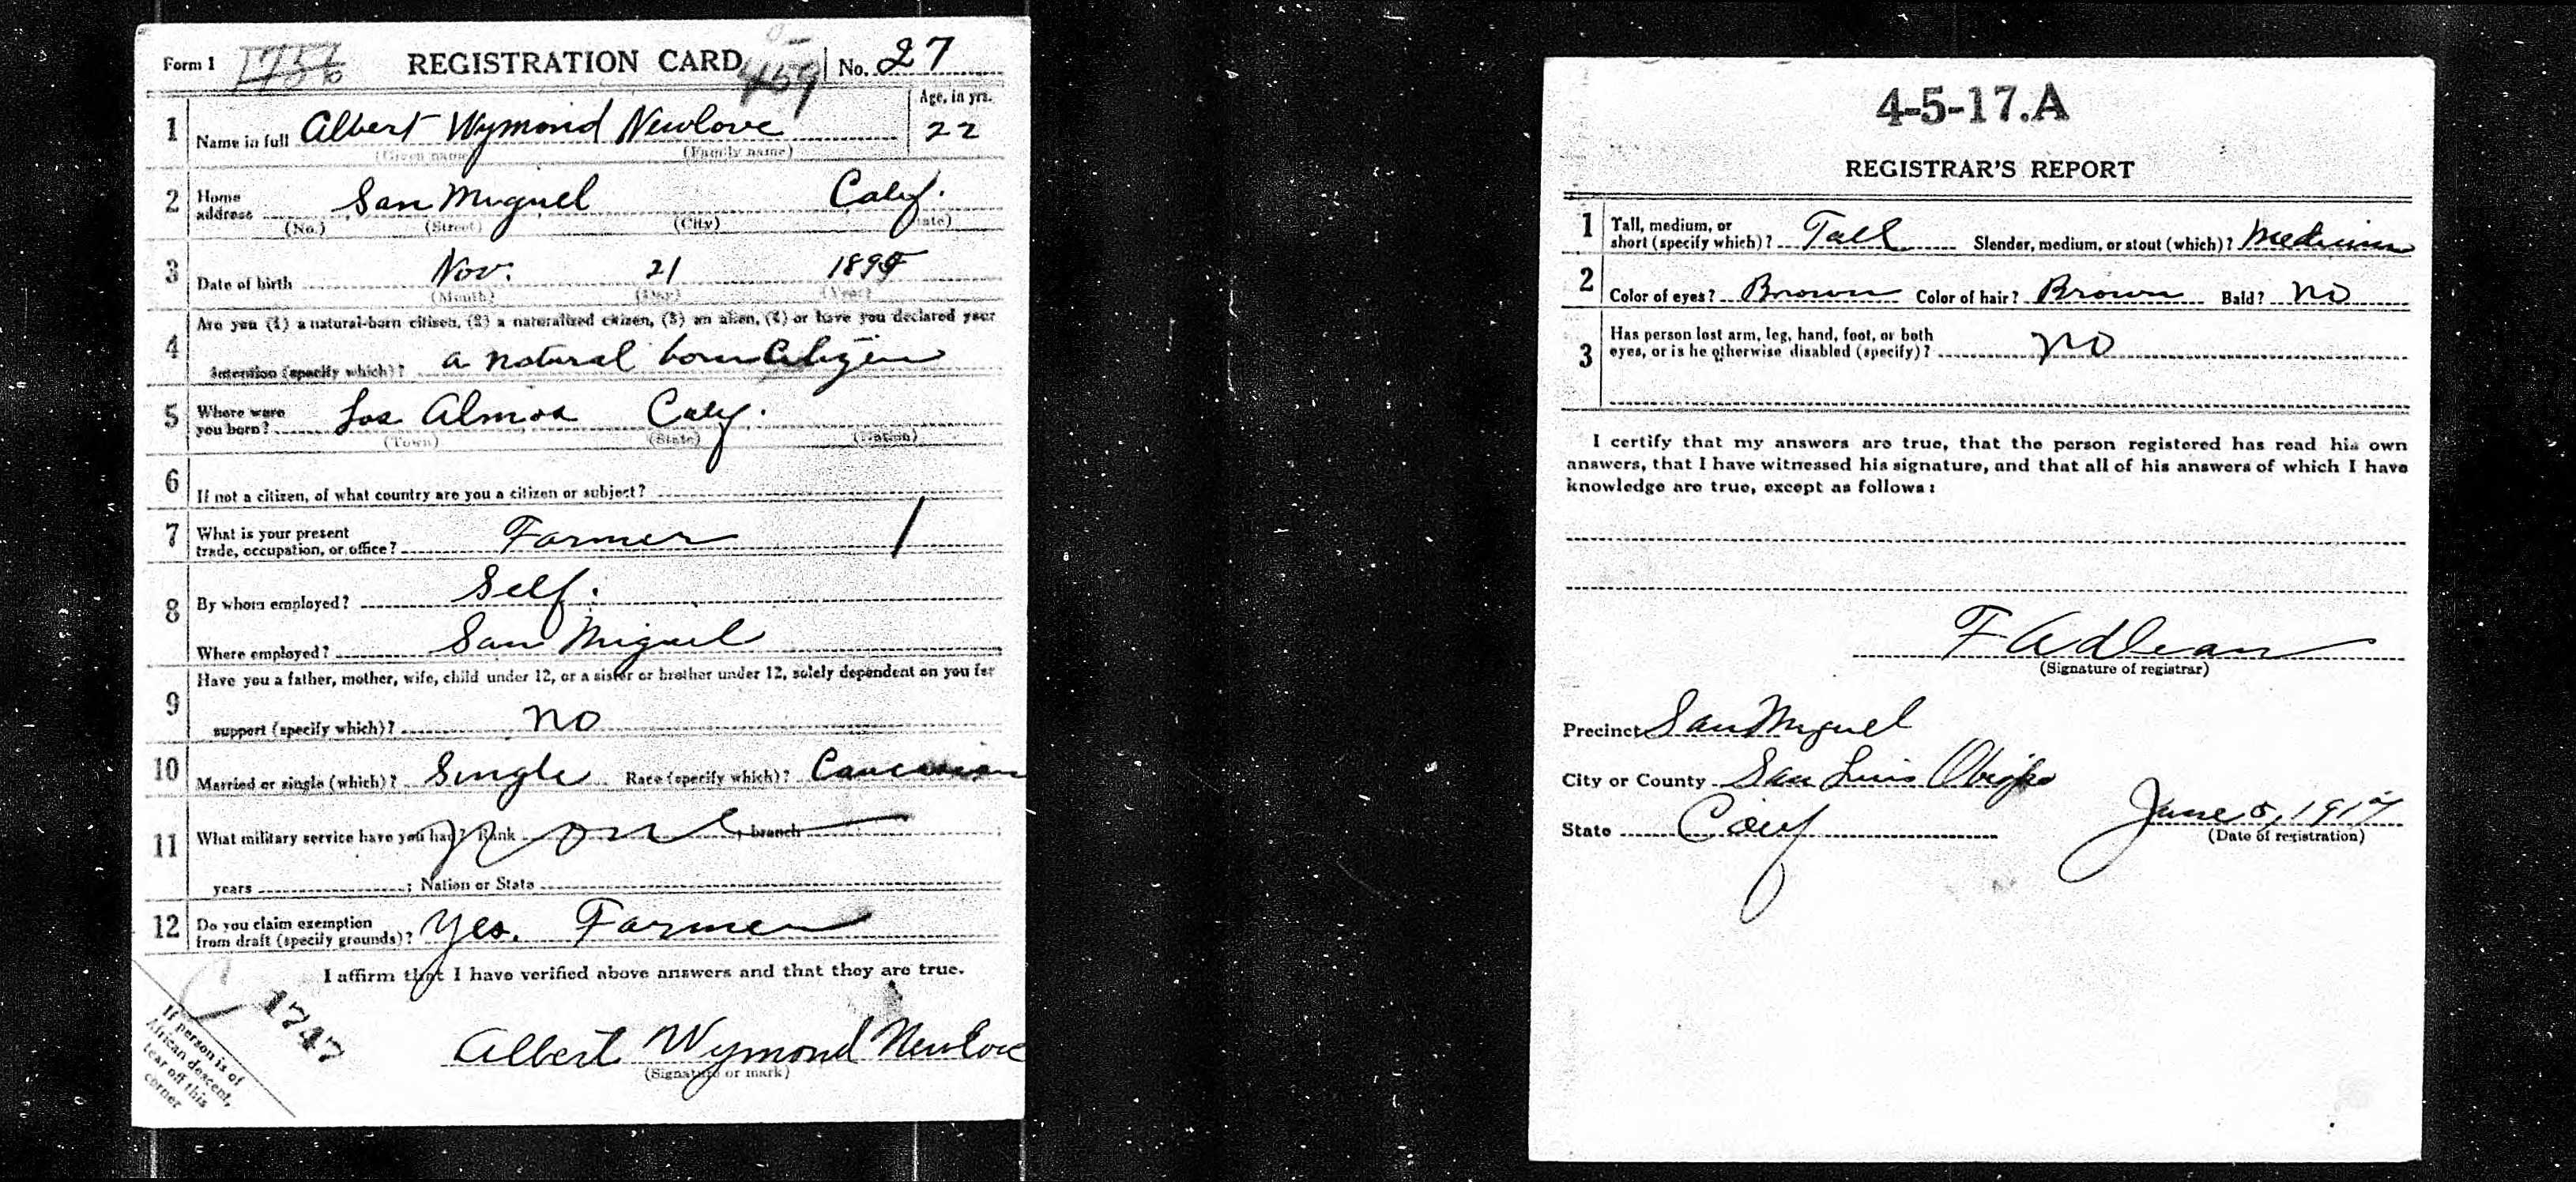 Form 1 REGISTRATION CARD 459 No. 27
1 Name in full Albert Wymond Newlove Age, in yrs. 22
(Given name) (Family name)
2 Home address San Miguel Calif.
(No.) (Street) (City) (State)
3 Date of birth Nov. 21
(Month) (Day) (Year)
4 Are you (1) a natural-born citizen, (2) a naturalized citizen, (3) an alien, (4) or have you declared your
intention (specify which)? a natural born Citizen
5 Where were you born? Los Almos Calif.
(Town) (State) (Nation)
6 If not a citizen, of what country are you a citizen or subject?
7 What is your present
trade, occupation, or office? Farmer
8 By whom employed? Self.
Where employed? San Miguel
9 Have you a father, mother, wife, child under 12, or a sister or brother under 12, solely dependent on you for
support (specify which)? no
10 Married or single (which)? Single Race (specify which)? Caucasian
11 What military service have you had? Rank none ; branch ;
years ; Nation or State
12 Do you claim exemption
from draft (specify grounds)? Yes. Farmer
I affirm that I have verified above answers and that they are true.
1747
Albert Wymond Newlove
(Signature or mark)
If person is of
African descent,
tear off this
corner
4-5-17.A
REGISTRAR'S REPORT
1 Tall, medium, or
short (specify which)? Tall Slender, medium, or stout (which)? Medium
2 Color of eyes? Brown Color of hair? Brown Bald? No
3 Has person lost arm, leg, hand, foot, or both
eyes, or is he otherwise disabled (specify)? no
I certify that my answers are true, that the person registered has read his own
answers, that I have witnessed his signature, and that all of his answers of which I have
knowledge are true, except as follows:
F A Dean
(Signature of registrar)
Precinct San Miguel
City or County San Luis Obispo
State Calif June 5, 1917
(Date of registration)